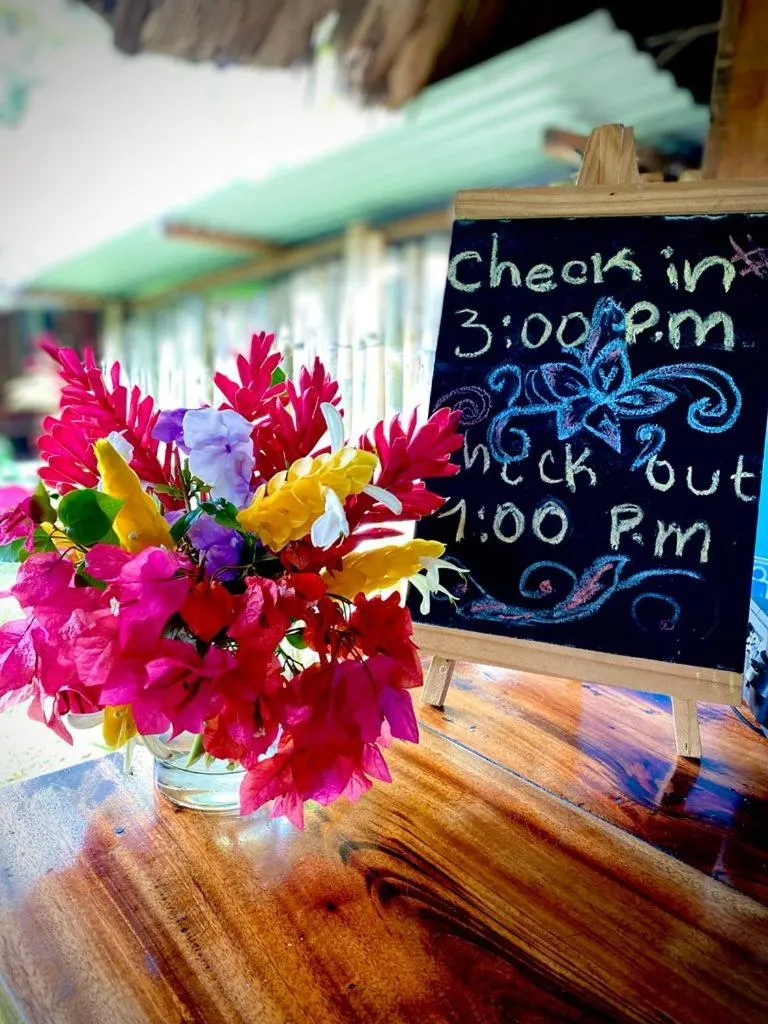 Check in
3:00 P.m
Check out
1:00 P.m